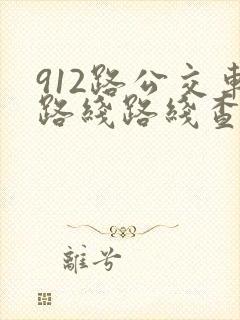 912路公交車
路线路线查
離兮